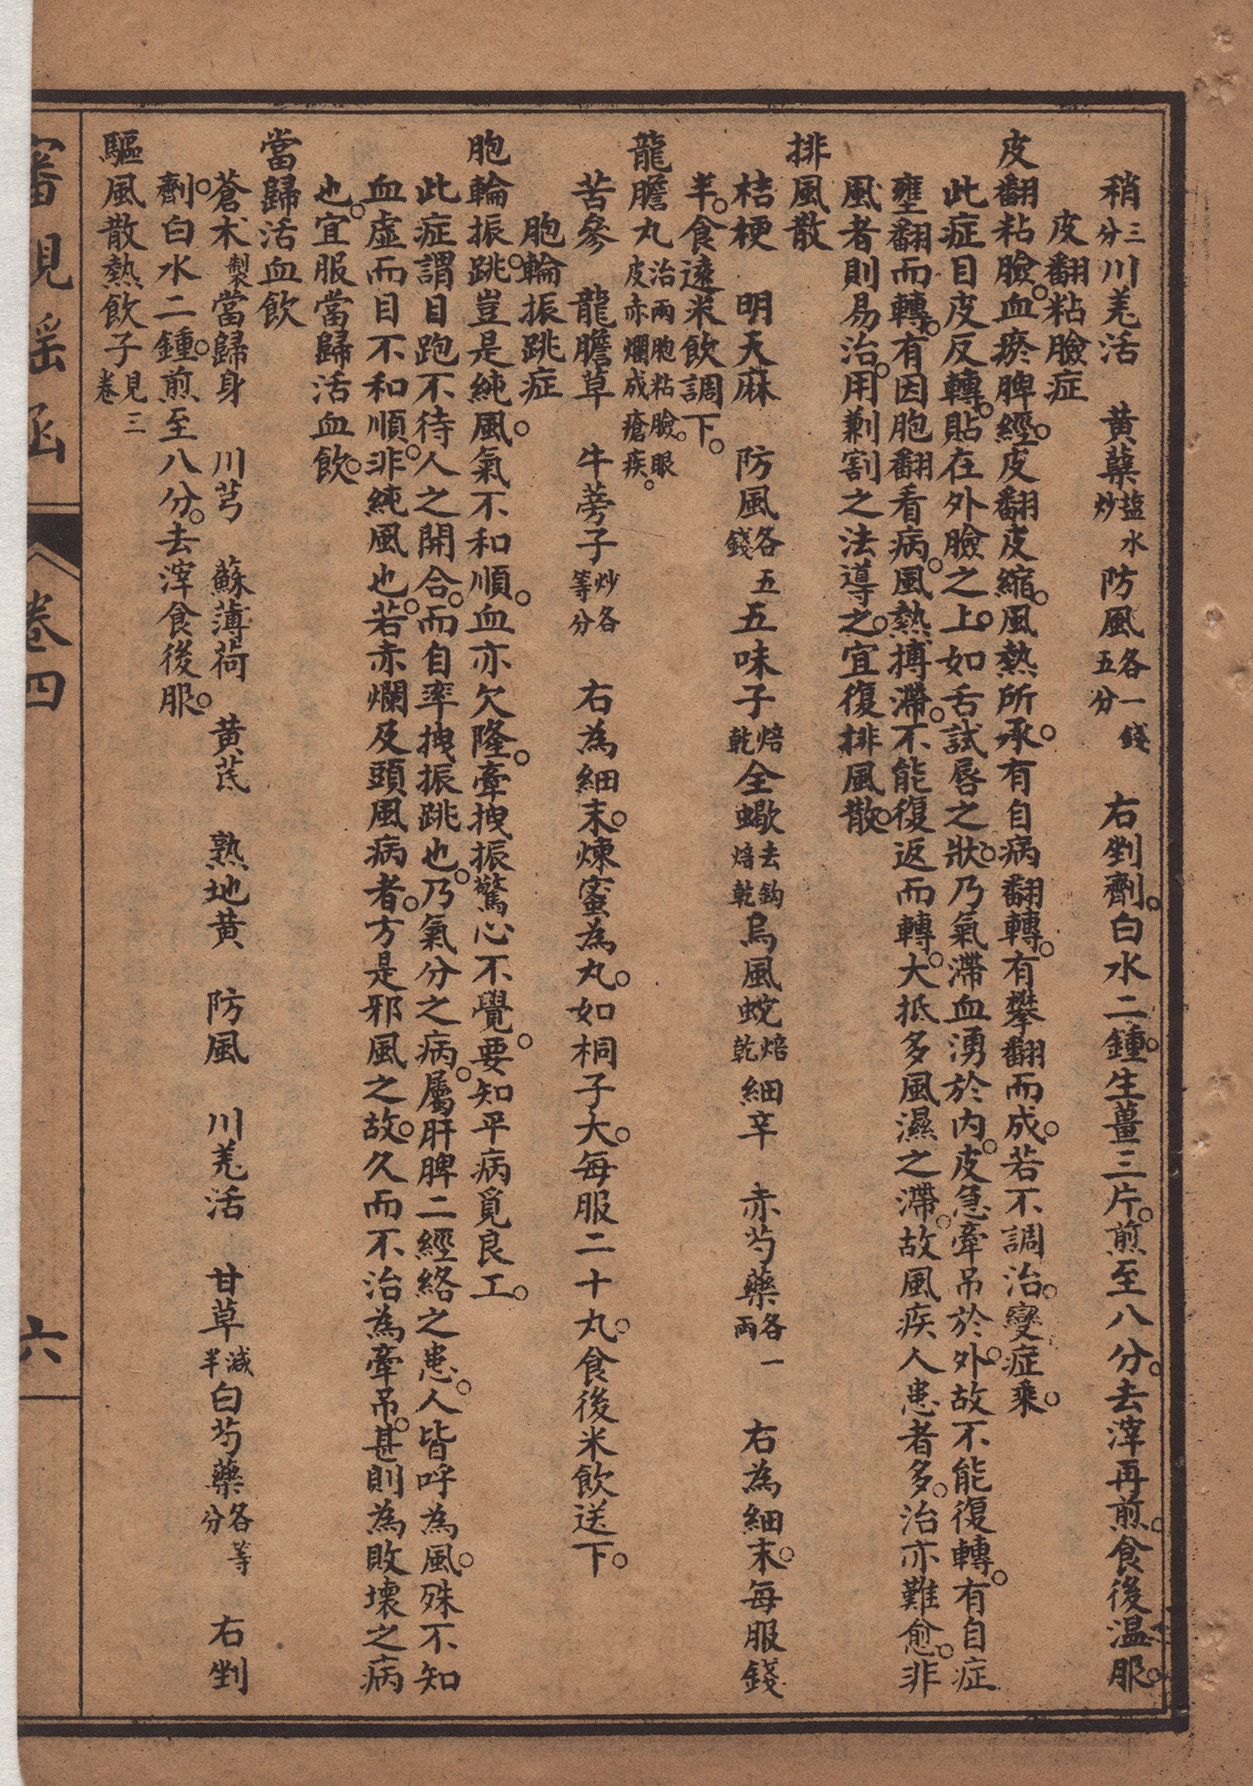 稍三分川羌活　黃蘗鹽水炒防風各一錢五分　右剉劑。白水二鍾。生薑三片。煎至八分。去滓再煎。食後温服。
皮翻粘瞼症
皮翻粘瞼。血瘀脾經。皮翻皮縮。風熱所承。有自病翻轉。有攀翻而成。若不調治。變症乘。
此症目皮反轉。貼在外瞼之上。如舌試唇之狀。乃氣滯血湧於內。皮急牽吊於外。故不能復轉。有自症
壅翻而轉。有因胞翻看病。風熱搏滯。不能復返而轉。大抵多風濕之滯。故風疾人患者多。治亦難愈。非
風者則易治。用劆割之法導之。宜復排風散。
排風散
桔梗　明天麻　防風各五錢五味子焙乾全蠍去鈎焙乾烏風蛇焙乾細辛　赤芍藥各一兩　右為細末。每服錢
半。食遠米飲調下。
龍膽丸治兩胞粘瞼。眼皮赤爛成瘡疾。
苦參　龍膽草　牛蒡子炒各等分　右為細末。煉蜜為丸。如桐子大。每服二十丸。食後米飲送下。
胞輪振跳症
胞輪振跳。豈是純風。氣不和順。血亦欠隆。牽拽振驚心不覺。要知平病覓良工。
此症謂目跑不待人之開合。而自率拽振跳也。乃氣分之病。屬肝脾二經絡之患。人皆呼為風。殊不知
血虛而目不和順。非純風也。若赤爛及頭風病者。方是邪風之故。久而不治為牽吊。甚則為敗壞之病
也。宜服當歸活血飲。
當歸活血飲
蒼朮製當歸身　川芎　蘇薄荷　黃芪　熟地黃　防風　川羌活　甘草減半白芍藥各等分　右剉
劑。白水二鍾。煎至八分。去滓食後服。
驅風散熱飲子見三卷
審視瑤函　卷四　六